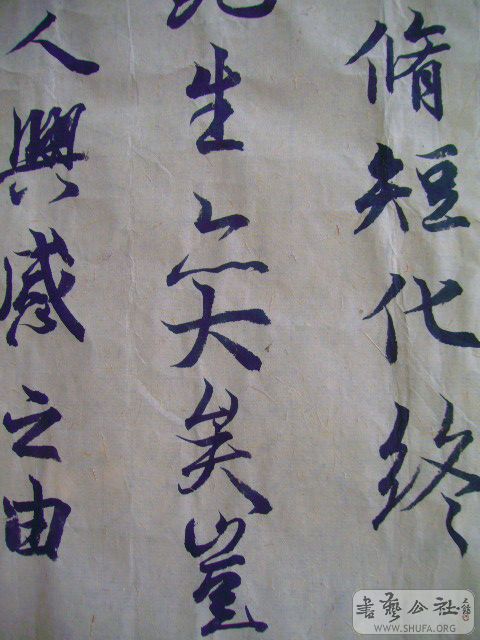 脩短化終
生亦大矣豈
人興感之由
書藝公社
WWW.SHUFA.ORG